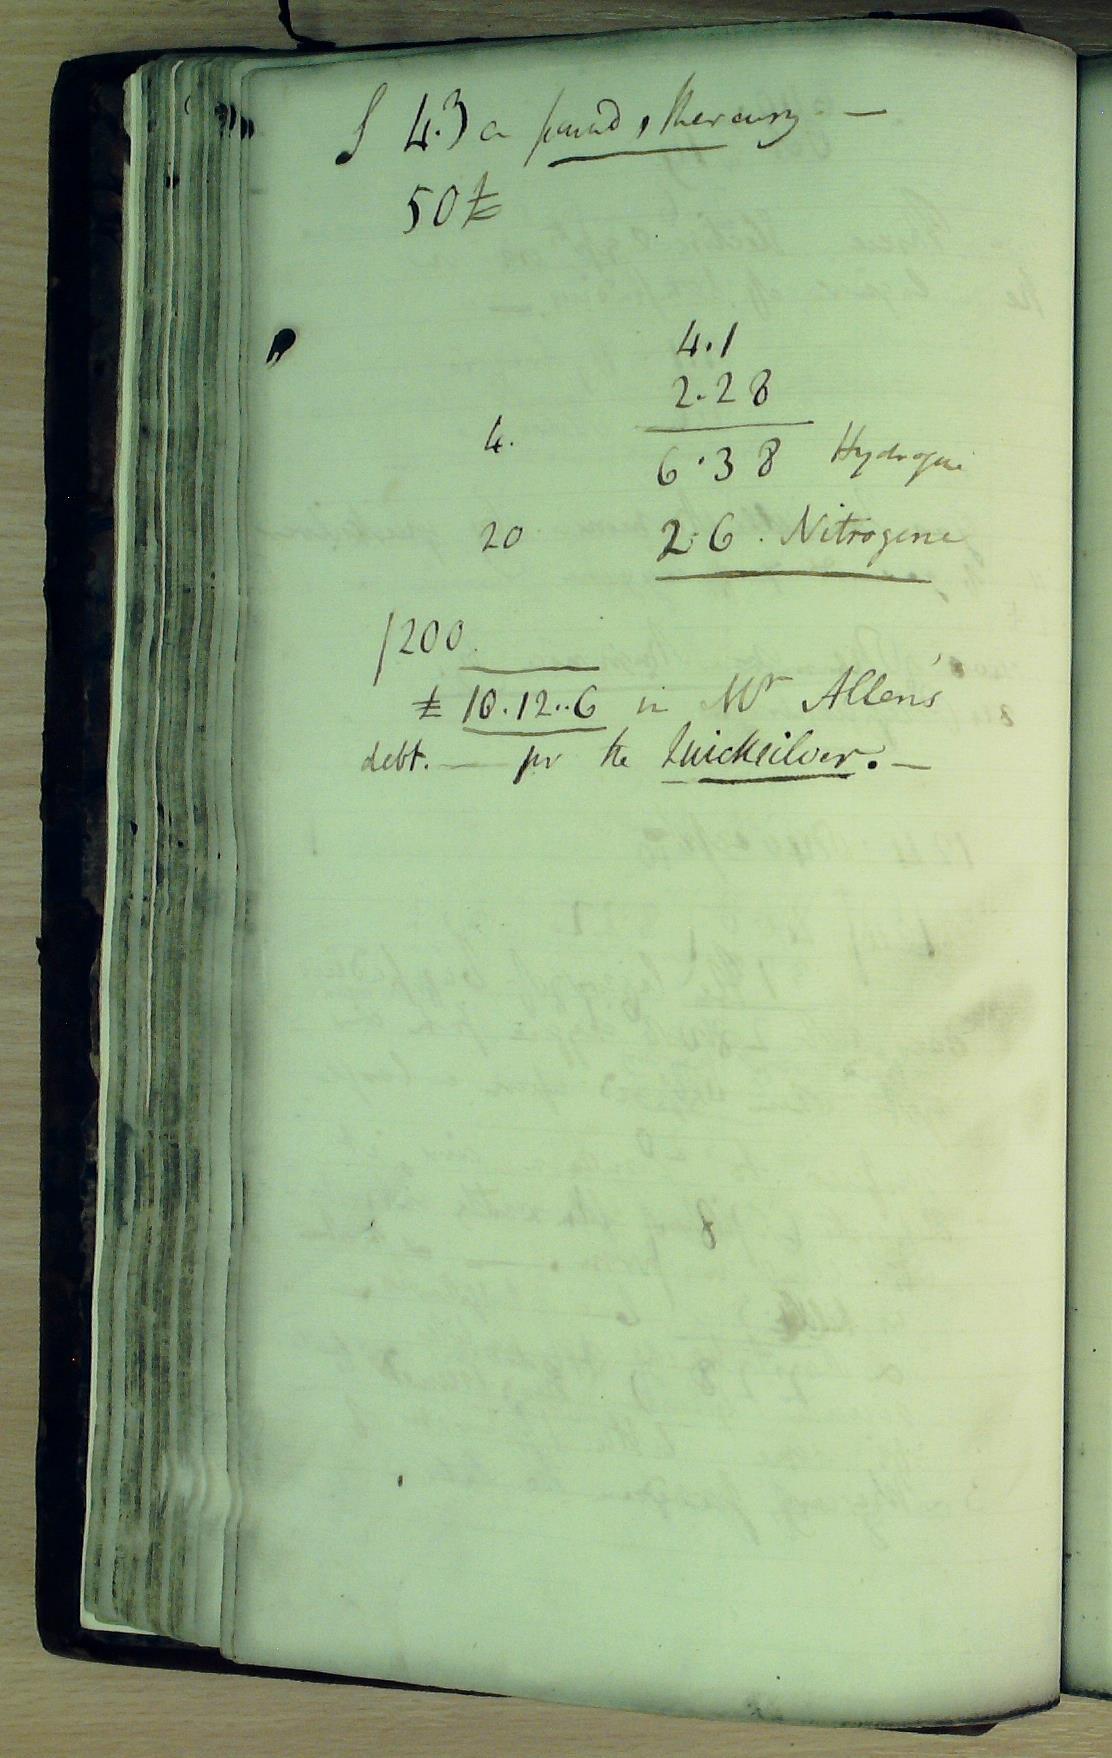 S 4.3 a pound, Mercury —
50 £
4.1
2.28
4.
6.38 Hydrogene
20 2.6. Nitrogene
1200.
£ 10.12..6 in Mr Allens'
debt. — for the Quicksilver. —